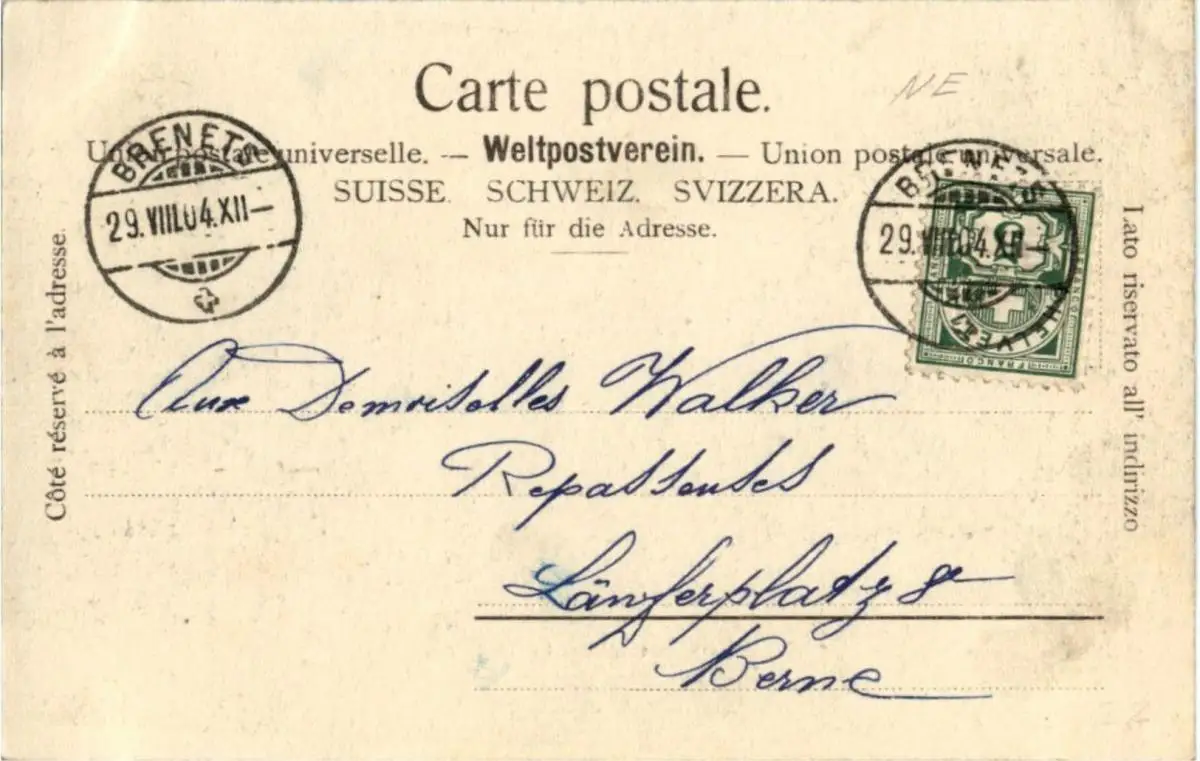 Carte postale.
NE
Union postale universelle. — Weltpostverein. — Union postale universale.
SUISSE. SCHWEIZ. SVIZZERA.
Nur für die Adresse.
BRENETS
29.VIII.04.XII—
BRENETS
29.VIII.04.XII—
FRANCO
HELVETIA
Côté réservé à l'adresse.
Lato riservato all' indirizzo
Aux Demoiselles Walker
Repasseuses
Länferplatz 8
Berne